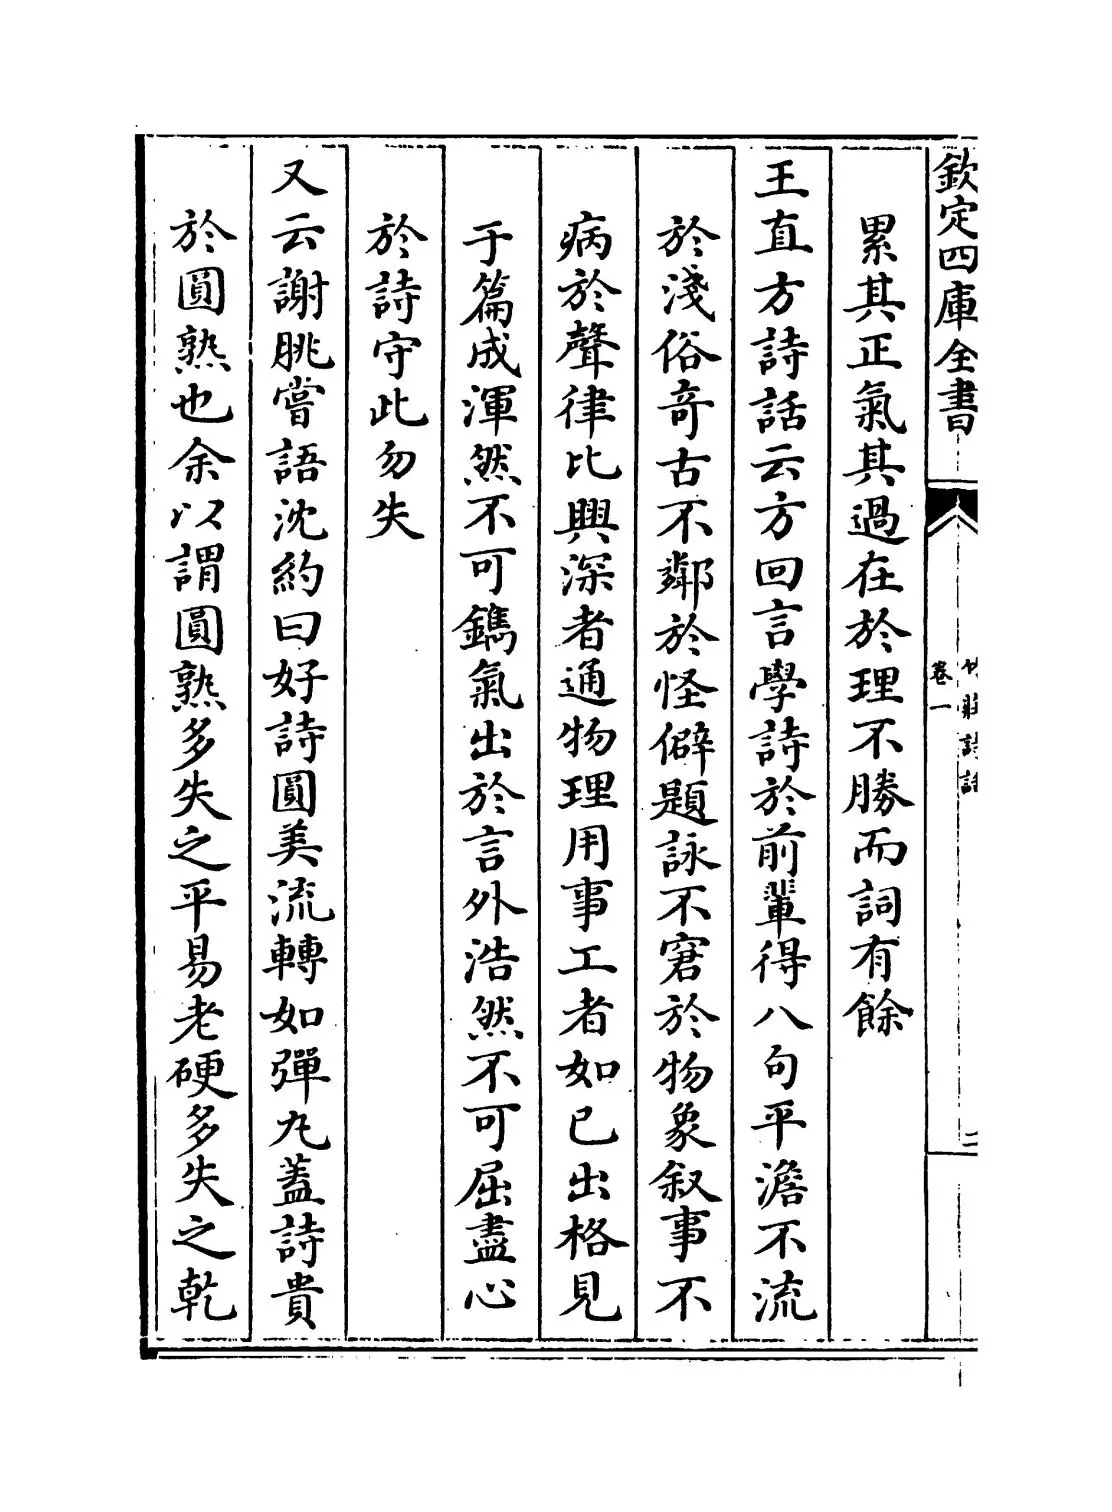 欽定四庫全書
竹莊詩話
卷一
二
累其正氣其過在於理不勝而詞有餘
王直方詩話云方回言學詩於前輩得八句平澹不流
於淺俗奇古不鄰於怪僻題詠不窘於物象叙事不
病於聲律比興深者通物理用事工者如已出格見
于篇成渾然不可鐫氣出於言外浩然不可屈盡心
於詩守此勿失
又云謝眺嘗語沈約曰好詩圓美流轉如彈丸蓋詩貴
於圓熟也余以謂圓熟多失之平易老硬多失之乾